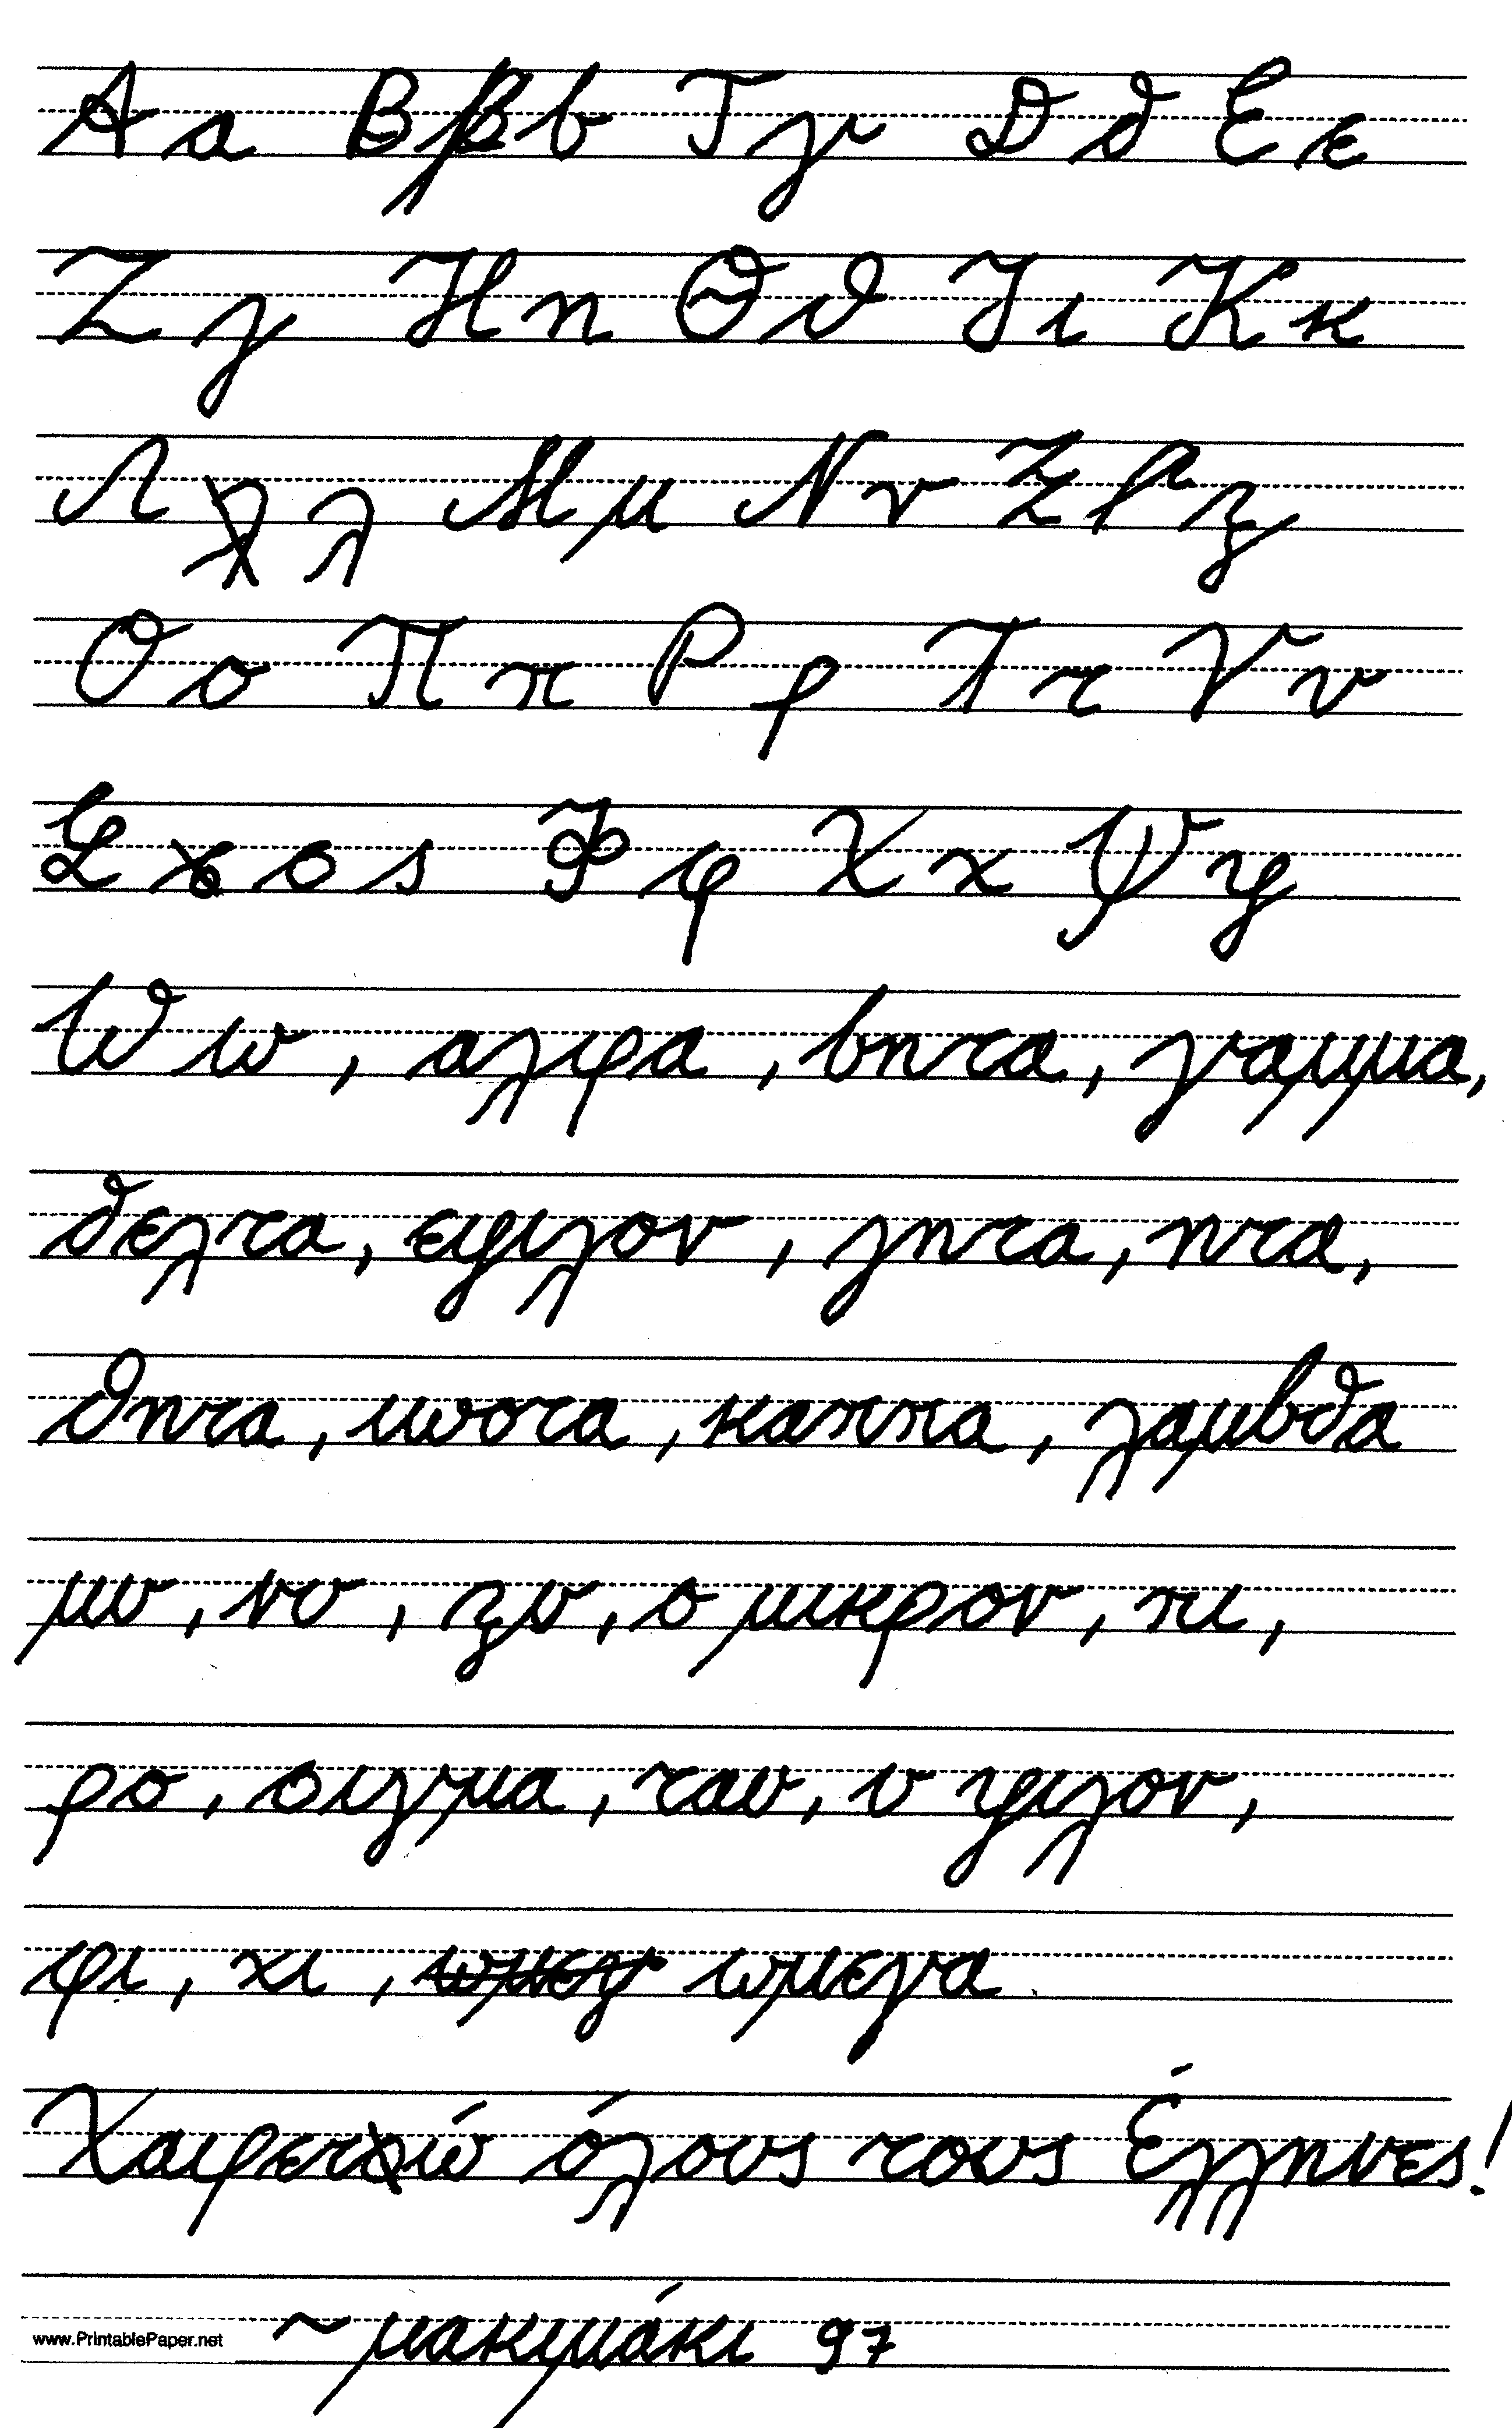 Α α Β β b Γ γ D δ Ε ε
Ζ ζ Η η Θ θ Ι ι Κ κ
Λ λ Μ μ Ν ν Ξ ξ
Ο ο Π π Ρ ρ Τ τ Υ υ
Σ σ ς Φ φ Χ χ Ψ ψ
Ω ω, αλφα, βητα, γαμμα,
δελτα, εψιλον, ζητα, ητα,
θητα, ιωοτα, καππα, λαμβδα
μυ, νυ, ξυ, ο μικρον, πι,
ρο, σιγμα, ταυ, υ ψιλον,
φι, χι, ωμεγ ωμεγα
Χαιρετώ όλους τους Έλληνες!
~ μακιμάκι 97
www.PrintablePaper.net